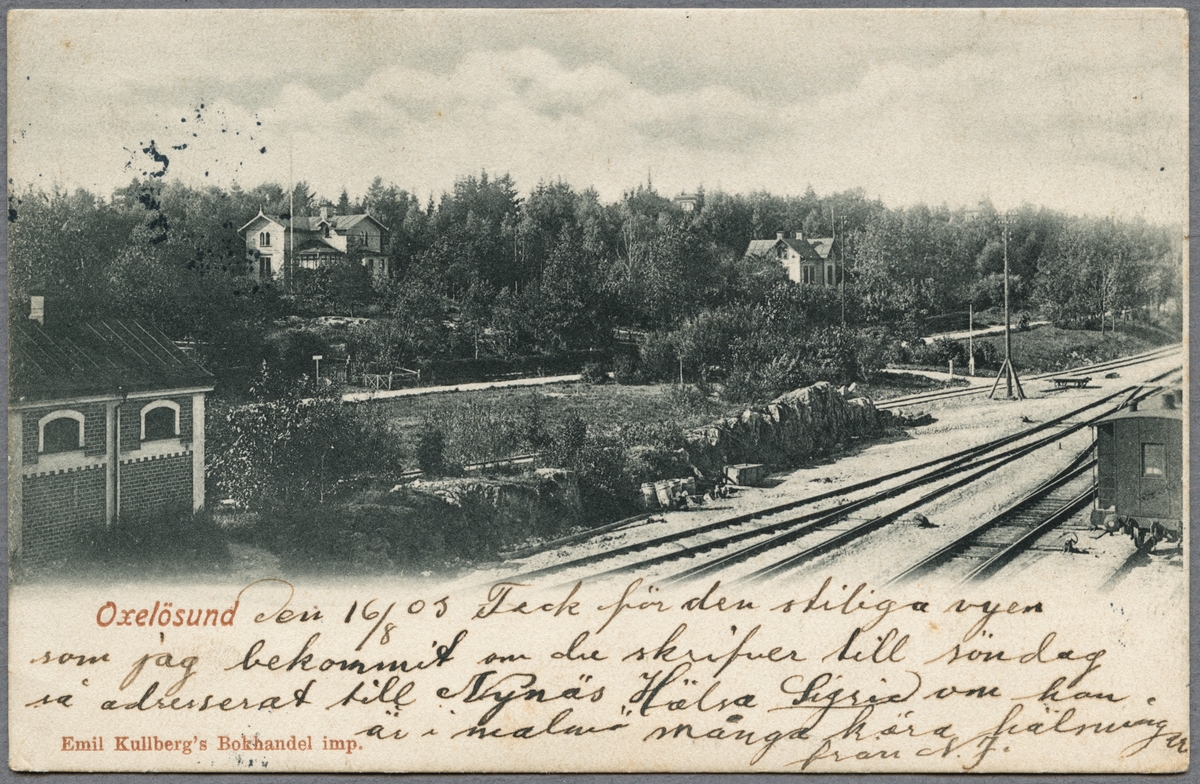 Oxelösund den 16/8 03 Tack för den stiliga vyen
som jag bekommit om du skrifver till söndag
så adresserat till Nynäs Hälsa Sigrid om hon
är i malmö många kära hälsningar
från N. J.
Emil Kullberg's Bokhandel imp.